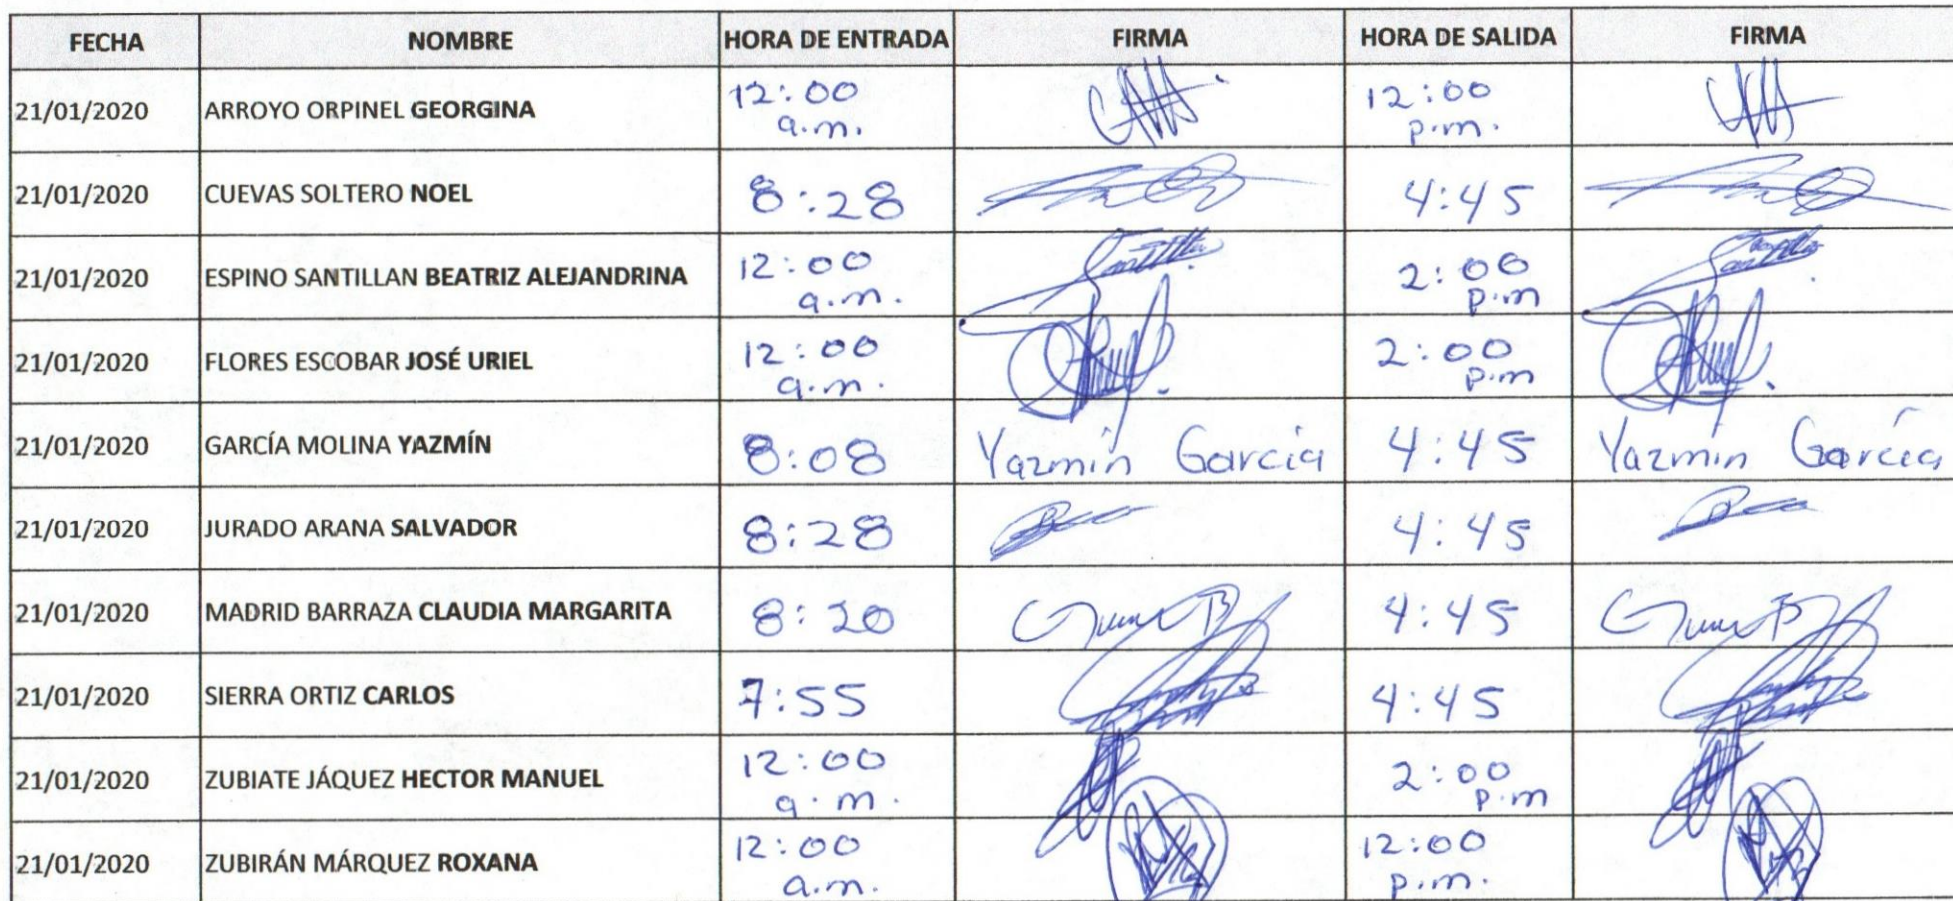 FECHA NOMBRE HORA DE ENTRADA FIRMA HORA DE SALIDA FIRMA
21/01/2020 ARROYO ORPINEL GEORGINA 12:00 a.m. 12:00 p.m.
21/01/2020 CUEVAS SOLTERO NOEL 8:28 4:45
21/01/2020 ESPINO SANTILLAN BEATRIZ ALEJANDRINA 12:00 a.m. 2:00 p.m
21/01/2020 FLORES ESCOBAR JOSÉ URIEL 12:00 a.m. 2:00 p.m
21/01/2020 GARCÍA MOLINA YAZMÍN 8:08 Yazmín García 4:45 Yazmin García
21/01/2020 JURADO ARANA SALVADOR 8:28 4:45
21/01/2020 MADRID BARRAZA CLAUDIA MARGARITA 8:20 4:45
21/01/2020 SIERRA ORTIZ CARLOS 7:55 4:45
21/01/2020 ZUBIATE JÁQUEZ HECTOR MANUEL 12:00 a.m. 2:00 p.m
21/01/2020 ZUBIRÁN MÁRQUEZ ROXANA 12:00 a.m. 12:00 p.m.